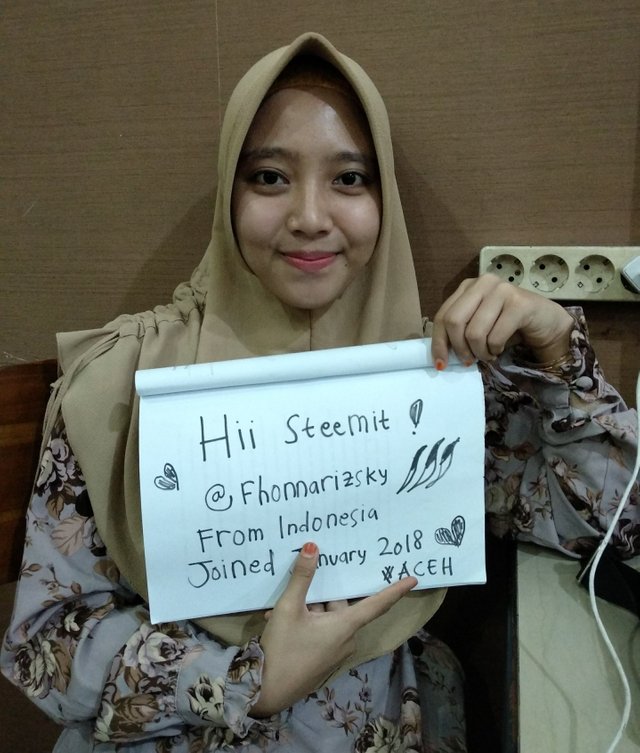 Hii Steemit !
@Fhonnarizsky
From Indonesia
Joined January 2018
ACEH